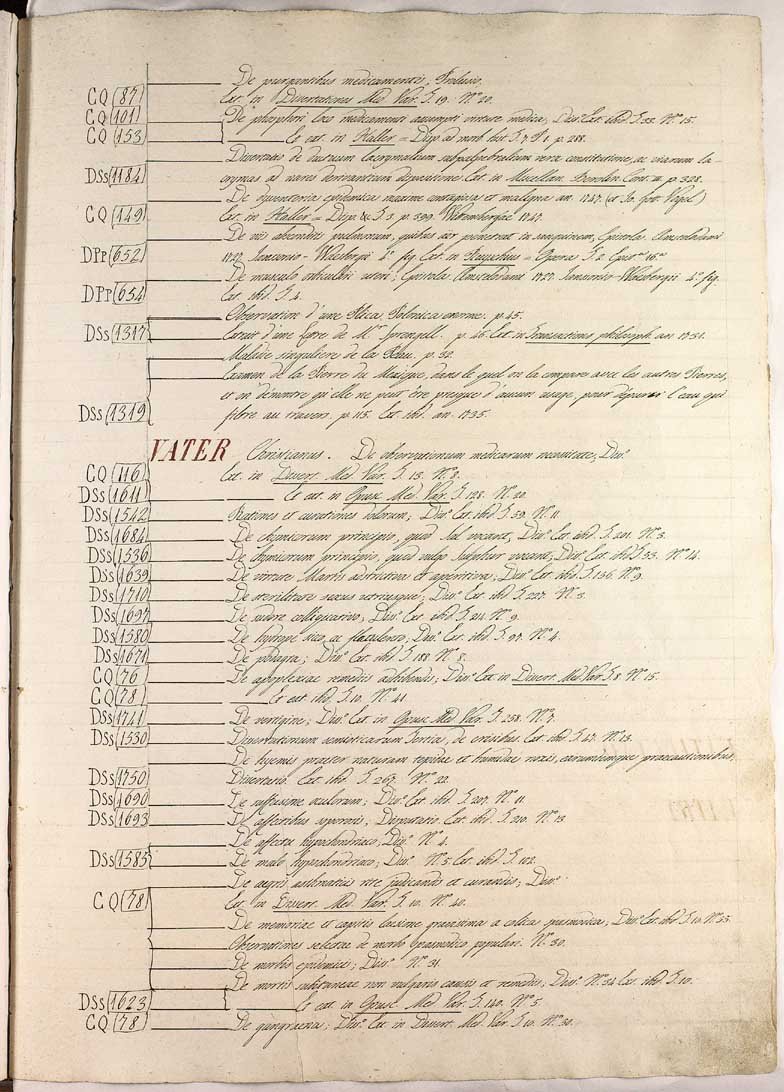 De purgantibus medicamentis, Prolusio.
CQ (87) Ext. in Dissertationes Med. Var. T. 19. Nº 20.
CQ (101) De phosphori loco medicamenti assumpti virtute medica, Dissº. Ext. ibid. T. 33. Nº 15.
CQ (153) Et ext. in Haller = Disp. ad morb. hist. T. 7. p. 288.
Dissertatio de ductuum lacrymalium subpalpebralium vera constitutione, ac viarum la-
DSs (1184) crymas ad nares derivantium dispositione. Ext. in Miscellan. Berolin. Cont. III. p. 328.
De dysenteria epidemica maxime contagiosa et maligna an. 1747. (et Jo. Got. Vogel)
CQ (149) Ext. in Haller = Disp. &. T. 3. p. 399. Wittembergae 1747.
De viis absconditis pulmonum, quibus aër penetrat in sanguinem, Epistola. Amstelodami
DPp (652) 1727. Janssonio = Waesbergii 4º fig. Ext. in Ruyschius = Opera T. 2.
De musculo orbiculari uteri; Epistola. Amstelodami 1727. Janssonio Waesbergii 4º fig.
DPp (654) Ext. ibid. T. 4.
Observation d'une Plica Polonica enorme. p. 45.
DSs (1317) Extrait d'une Lettre de Mr Sprengell. p. 46. Ext. in Transactions philosoph. an 1731.
Maladie singuliere de la Peau. p. 52.
Examen de la Pierre du Mexique, dans le quel on la compare avec les autres Pierres,
et on démontre qu'elle ne peut être presque d'aucun usage, pour dépurer l'eau qui
DSs (1319) filtre au travers. p. 115. Ext. ibid. an. 1735.
VATER Christianus. De observationum medicarum necessitate; Dissº.
CQ (116) Ext. in Dissert. Med. Var. T. 13. Nº 8.
DSs (1611) Et ext. in Opusc. Med. Var. T. 128. Nº 20.
DSs (1542) Rationes et curationes dolorum; Dissº. Ext. ibid. T. 39. Nº 11.
DSs (1684) De chymicorum principio, quod Sal vocant; Dissº. Ext. ibid. T. 201. Nº 3.
DSs (1536) De chymicorum principio, quod vulgo Sulphur vocant; Dissº. Ext. ibid. T. 33. Nº 14.
DSs (1639) De virtute Martis adstrictoria et aperitiva; Dissº. Ext. ibid. T. 156. Nº 9.
DSs (1710) De sterilitate sexus utriusque; Dissº. Ext. ibid. T. 227. Nº 3.
DSs (1697) De sudore colliquativo; Dissº. Ext. ibid. T. 214. Nº 9.
DSs (1580) De hydrope sicco, ac flatulento; Dissº. Ext. ibid. T. 97. Nº 4.
DSs (1671) De podagra; Dissº. Ext. ibid. T. 188. Nº 8.
CQ (76) De apoplexiae remediis adhibendis; Dissº. Ext. in Dissert. Med. Var. T. 8. Nº 15.
CQ (78) Et ext. ibid. T. 10. Nº 41.
DSs (1741) De vertigine; Dissº. Ext. in Opusc. Med. Var. T. 258. Nº 7.
DSs (1530) Dissertationum semioticarum Tertia, de crisibus. Ext. ibid. T. 27. Nº 13.
De hyemis praeter naturam tepidae et humidae noxis, earumdemque praecautionibus,
DSs (1750) Dissertatio. Ext. ibid. T. 267. Nº 22.
DSs (1690) De suffusione oculorum; Dissº. Ext. ibid. T. 207. Nº 11.
DSs (1693) De affectibus soporosis, Disputatio. Ext. ibid. T. 210. Nº 13.
De affectu hypochondriaco; Dissº. Nº 4.
DSs (1585) De malo hypochondriaco; Dissº. Nº 5. Ext. ibid. T. 102.
De aegris asthmaticis rite judicandis et curandis; Dissº.
CQ (78) Ext. in Dissert. Med. Var. T. 10. Nº 40.
De memoriae et capitis laesione gravissima a colica spasmodica; Dissº. Ext. ibid. T. 10. Nº 33.
Observationes selectae de morbo spasmodico populari. Nº 30.
De morbis epidemicis; Dissº. Nº 31.
De mortis subitaneae non vulgaris causis et remediis; Dissº. Nº 32. Ext. ibid. T. 10.
DSs (1623) Et ext. in Opusc. Med. Var. T. 140. Nº 5.
CQ (78) De gangraena; Dissº. Ext. in Dissert. Med. Var. T. 10. Nº 30.